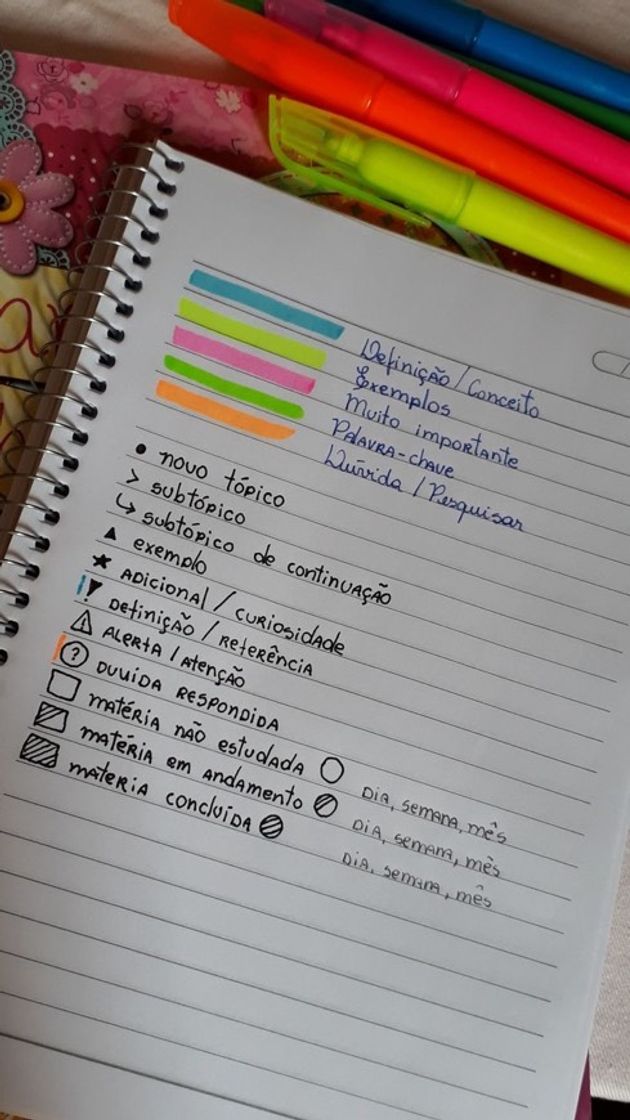 Definição / Conceito
Exemplos
Muito importante
PALAVRA-chave
Dúvida / Pesquisar
• novo tópico
> subtópico
↳ subtópico de continuação
▲ exemplo
★ ADICIONAL / CURIOSIDADE
Definição / Referência
⚠ ALERTA / ATENÇÃO
? DUVIDA RESPONDIDA
matéria não estudada
DIA, semana, mês
matéria em andamento
DIA, semana, mês
materia concluída
DIA, semana, mês